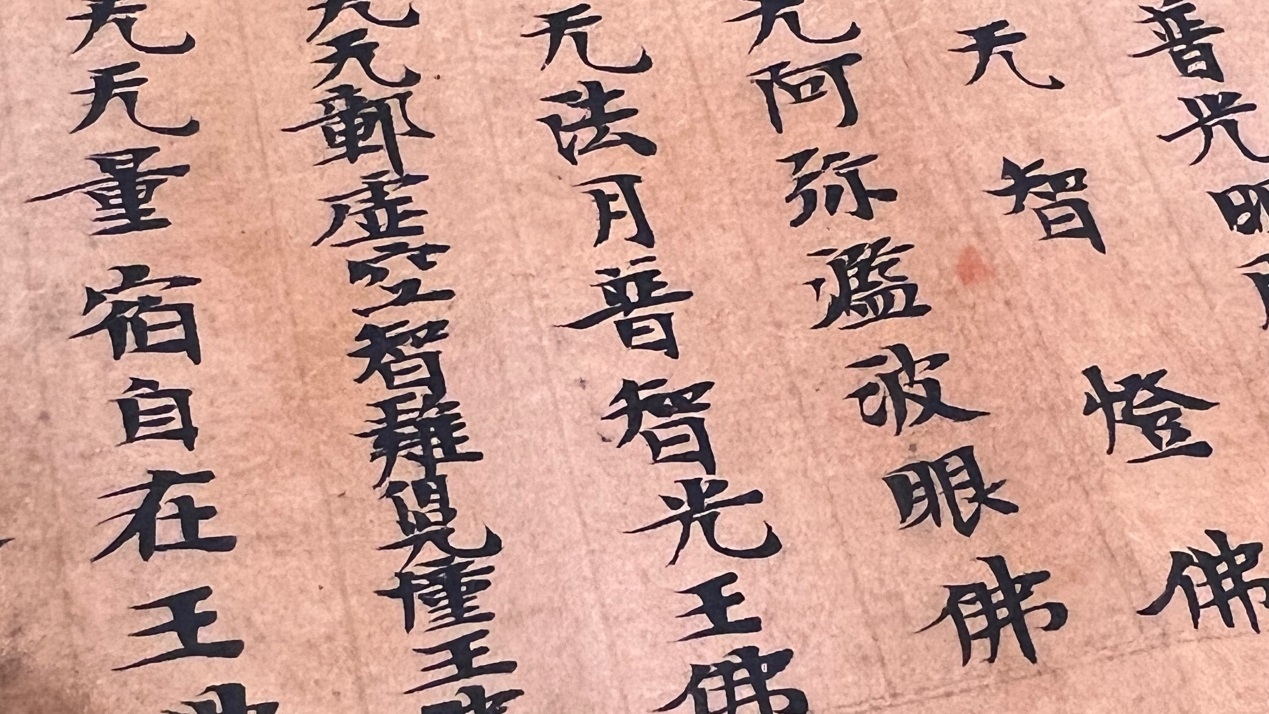 普光明
天智燈佛
无阿弥濫波眼佛
无法月普智光王佛
无无鄣虚空智難兜幢王
无无量宿自在王